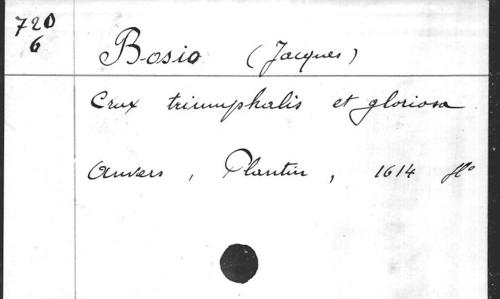 720
6
Bosio (Jacques)
Crux triumphalis et gloriosa
Anvers, Plantin, 1614 fo